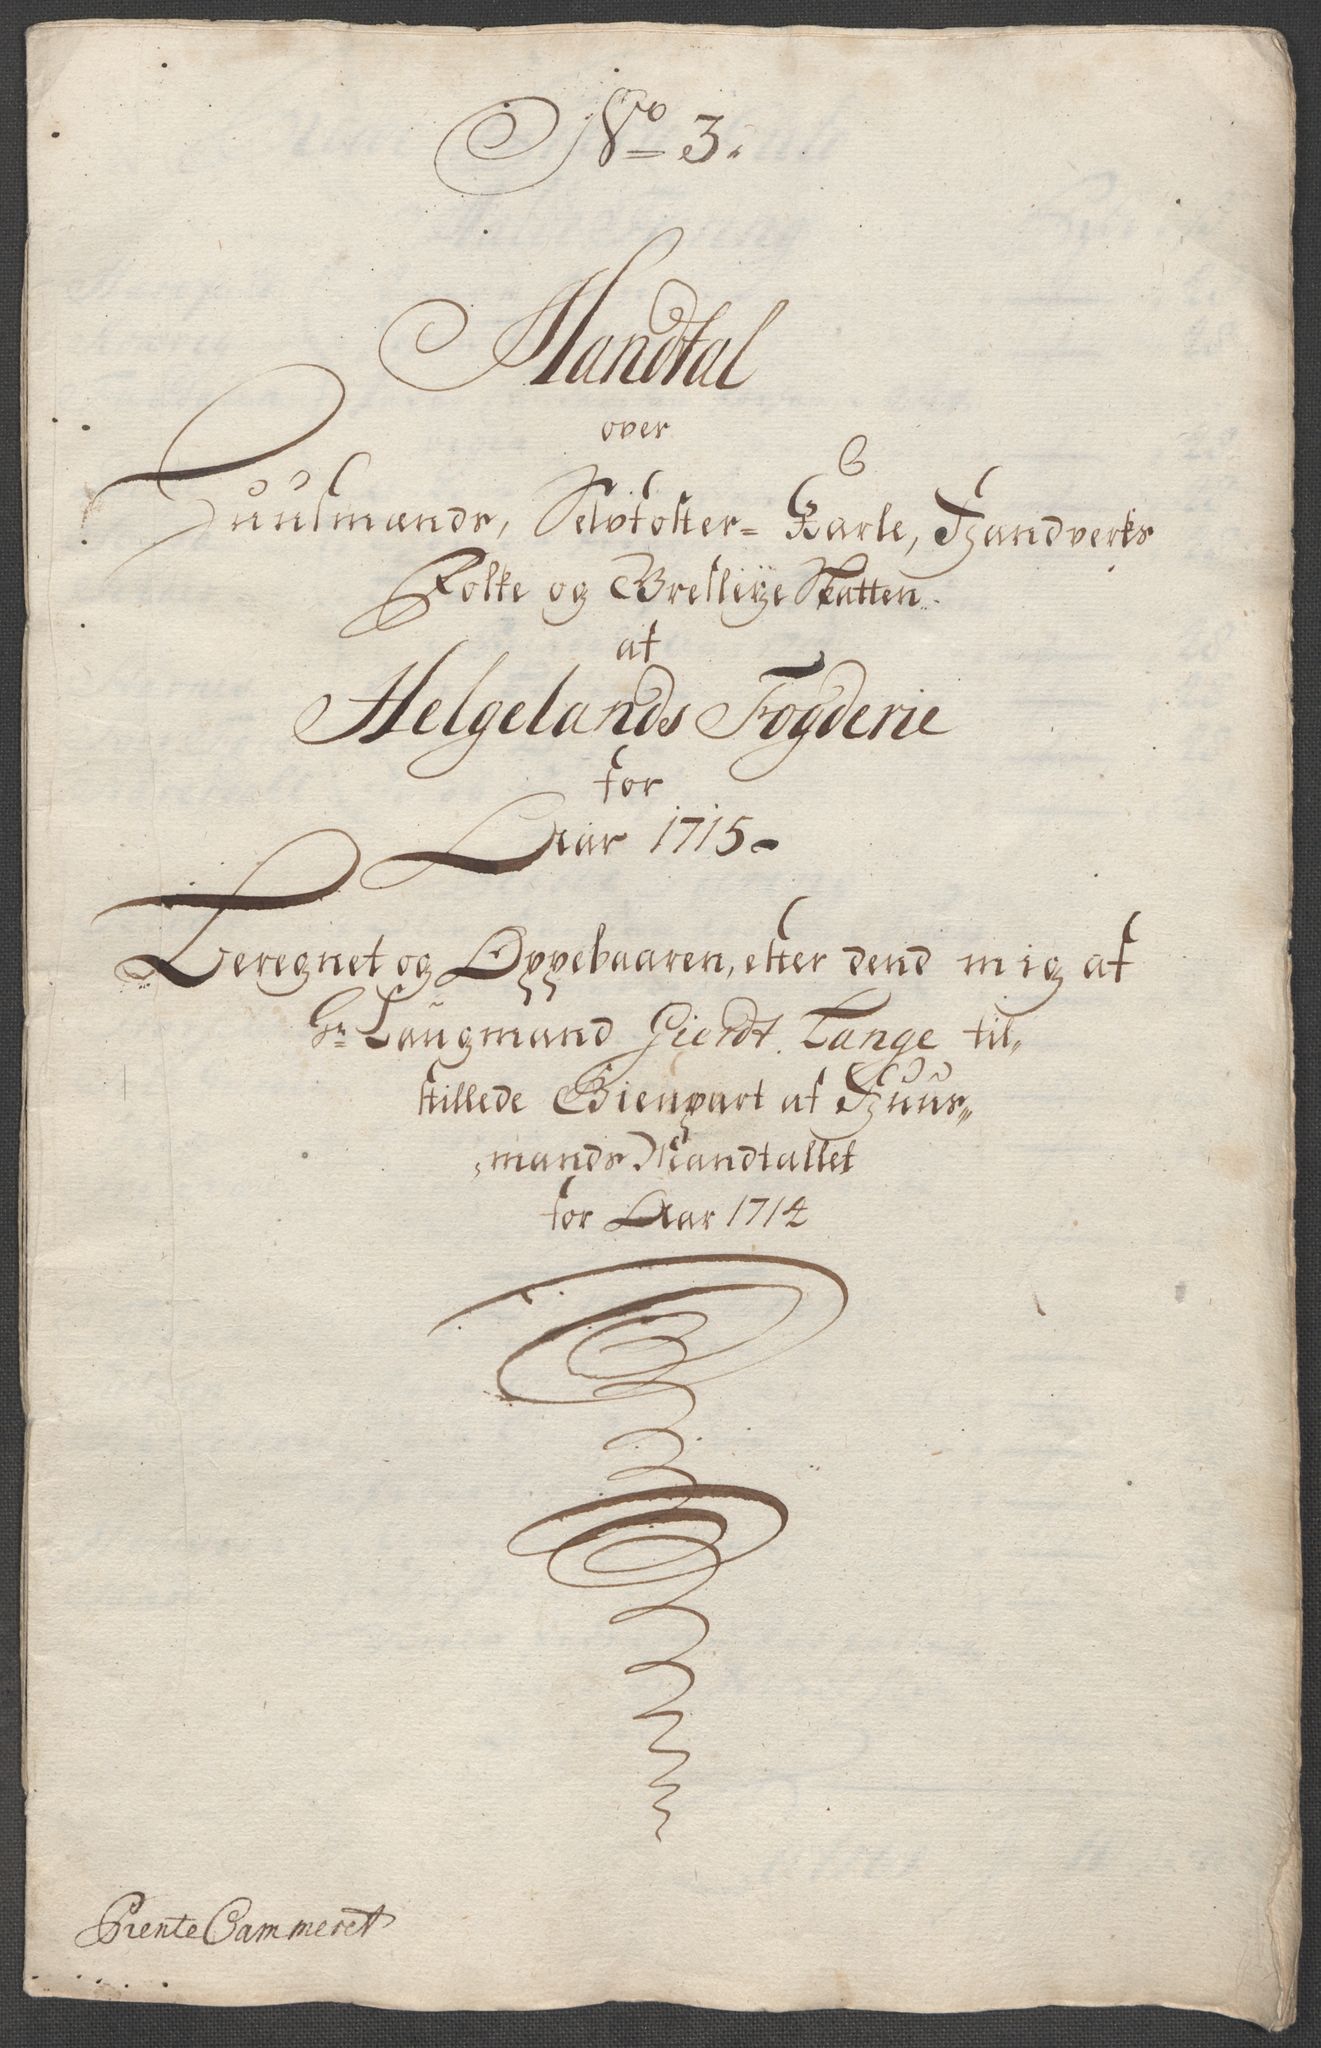 No 3.
Mandtal
over
Huusmænds, Selvfoster-Karle, Handverks
Folke og Brelleye Skatten
af
Helgelands Fogderie
for
Aar 1715
Beregnet og Oppebaaren, efter dend mig af
Hr Laugmand Giordt Lange til„
stillede Gienpart af Huus„
„mands Mandtallet
for Aar 1714
Rente Cammeret